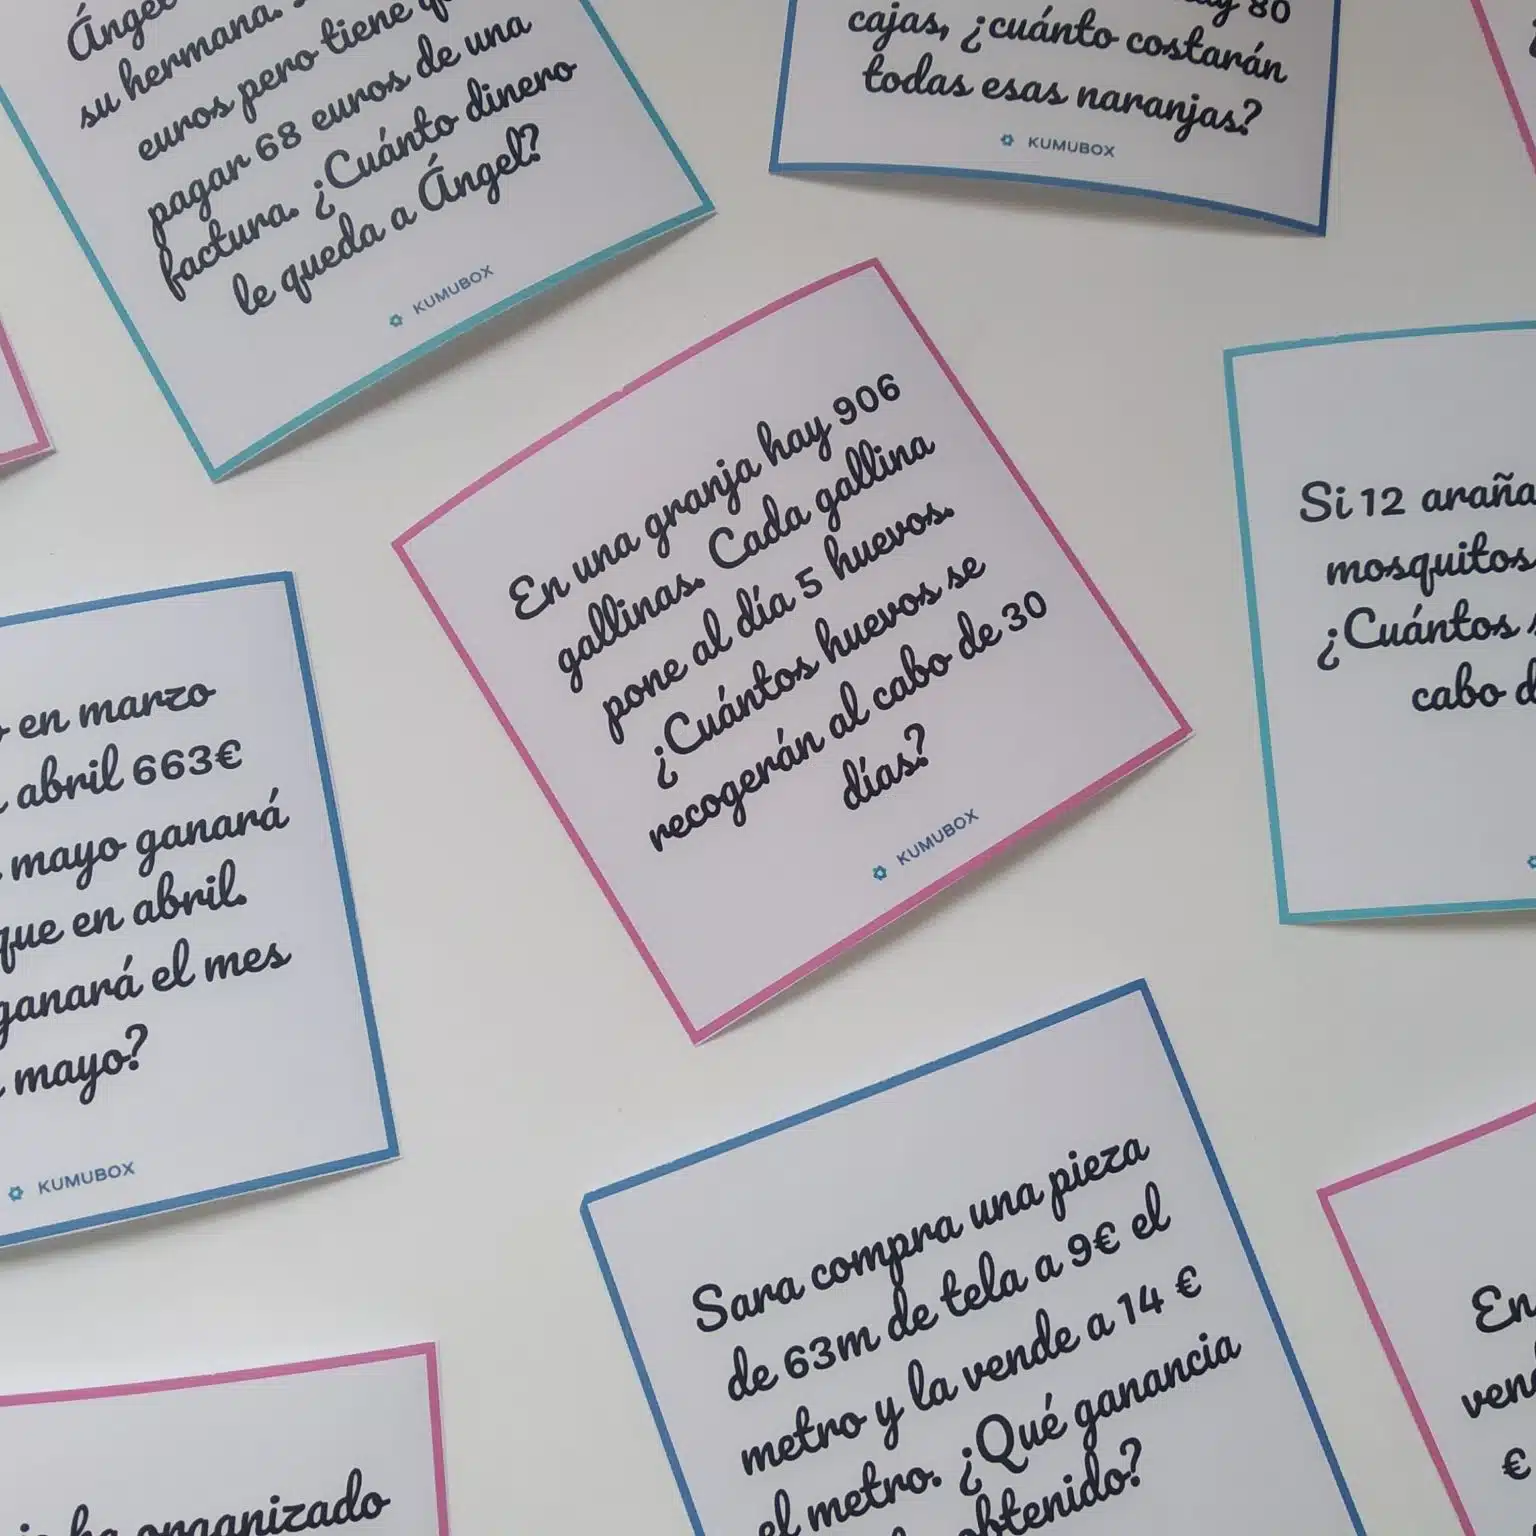 Ángel
su hermana.
euros pero tiene
pagar 68 euros de una
factura. ¿Cuánto dinero
le queda a Ángel?
KUMUBOX
80
cajas, ¿cuánto costarán
todas esas naranjas?
KUMUBOX
En una granja hay 906
gallinas. Cada gallina
pone al día 5 huevos.
¿Cuántos huevos se
recogerán al cabo de 30
días?
KUMUBOX
Si 12
mosquitos
¿Cuántos
cabo
en marzo
abril 663€
mayo ganará
que en abril.
ganará el mes
mayo?
KUMUBOX
Sara compra una pieza
de 63m de tela a 9€ el
metro y la vende a 14 €
el metro. ¿Qué ganancia
obtenido?
En
€
organizado